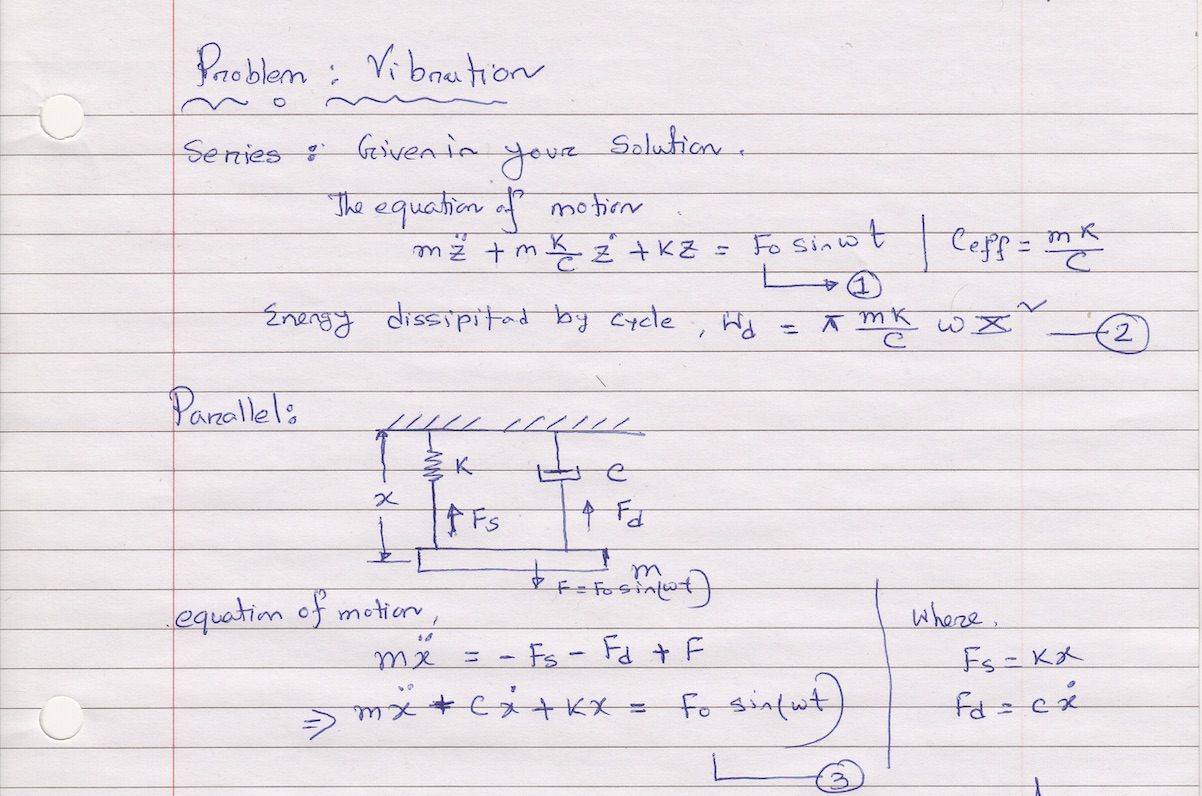 Problem : Vibration
Series : Given in your Solution.
The equation of motion
mz̈ + m K/C ż + Kz = F₀ sinωt | Ceff = mK/C
①
Energy dissipitad by cycle, Wd = π mK/C ω X² — ②
Parallel:
K
C
x
Fs
Fd
m
F = F₀ sin(ωt)
equation of motion,
mẍ = - Fs - Fd + F
⇒ mẍ + Cẋ + Kx = F₀ sin(ωt)
③
where,
Fs = Kx
Fd = cẋ